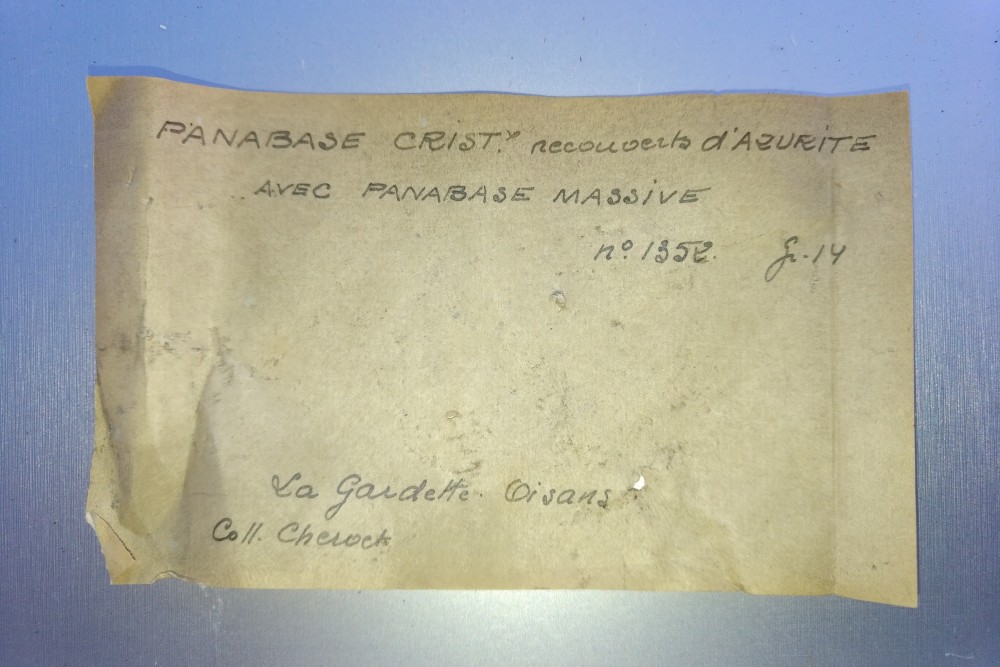 PANABASE CRIST.x recouverts d'AZURITE
AVEC PANABASE MASSIVE
nº 1352. Gr. 14
La Gardette. Oisans
Coll. Cherock